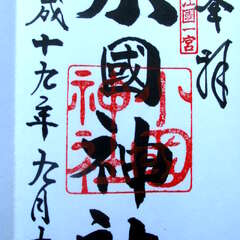 奉拝
國一宮
小國神社
小國神社
成十九年九月